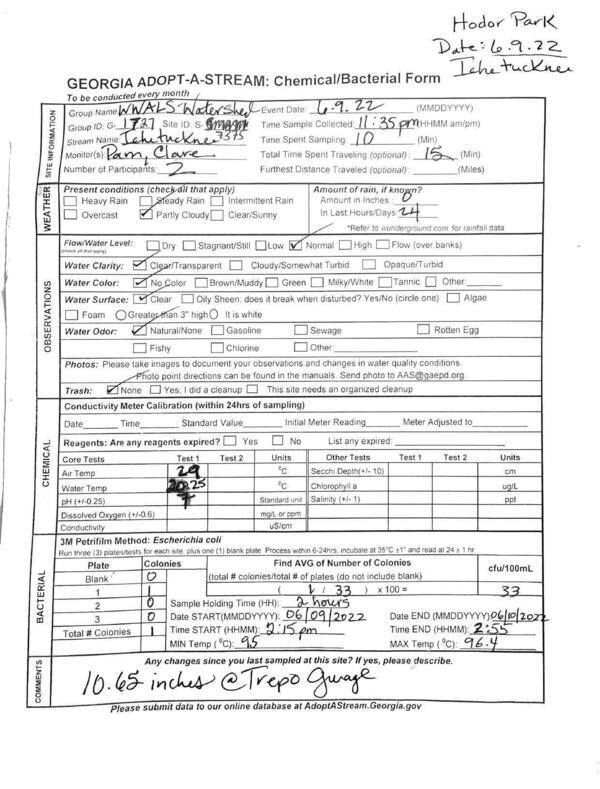 Hodor Park
Date: 6.9.22
Ichetucknee
GEORGIA ADOPT-A-STREAM: Chemical/Bacterial Form
To be conducted every month
SITE INFORMATION
Group Name WWALS Watershed Event Date: 6.9.22 (MMDDYYYY)
Group ID: G- 1727 Site ID: S- 7375 Time Sample Collected 11:35 pm (HHMM am/pm)
Stream Name Ichetucknee Time Spent Sampling 10 (Min)
Monitor(s) Pam, Clare Total Time Spent Traveling (optional): 15 (Min)
Number of Participants: 2 Furthest Distance Traveled (optional): (Miles)
WEATHER
Present conditions (check all that apply) Amount of rain, if known?
Heavy Rain Steady Rain Intermittent Rain Amount in Inches 0
Overcast Partly Cloudy Clear/Sunny In Last Hours/Days 24
*Refer to wunderground.com for rainfall data
OBSERVATIONS
Flow/Water Level: Dry Stagnant/Still Low Normal High Flow (over banks)
(check all that apply)
Water Clarity: Clear/Transparent Cloudy/Somewhat Turbid Opaque/Turbid
Water Color: No Color Brown/Muddy Green Milky/White Tannic Other:
Water Surface: Clear Oily Sheen: does it break when disturbed? Yes/No (circle one) Algae
Foam Greater than 3" high It is white
Water Odor: Natural/None Gasoline Sewage Rotten Egg
Fishy Chlorine Other:
Photos: Please take images to document your observations and changes in water quality conditions.
Photo point directions can be found in the manuals. Send photo to AAS@gaepd.org.
Trash: None Yes, I did a cleanup This site needs an organized cleanup
CHEMICAL
Conductivity Meter Calibration (within 24hrs of sampling)
Date Time Standard Value Initial Meter Reading Meter Adjusted to
Reagents: Are any reagents expired? Yes No List any expired:
Core Tests Test 1 Test 2 Units Other Tests Test 1 Test 2 Units
Air Temp 29 °C Secchi Depth(+/- 10) cm
Water Temp 20.25 °C Chlorophyll a ug/L
pH (+/-0.25) 7 Standard unit Salinity (+/- 1) ppt
Dissolved Oxygen (+/-0.6) mg/L or ppm
Conductivity uS/cm
BACTERIAL
3M Petrifilm Method: Escherichia coli
Run three (3) plates/tests for each site, plus one (1) blank plate. Process within 6-24hrs, incubate at 35°C ±1° and read at 24 ± 1 hr
Plate Colonies Find AVG of Number of Colonies cfu/100mL
Blank 0 (total # colonies/total # of plates (do not include blank)
1 1 ( 1 / 33 ) x 100 = 33
2 0 Sample Holding Time (HH): 2 hours
3 0 Date START(MMDDYYYY): 06/09/2022 Date END (MMDDYYYY) 06/10/2022
Total # Colonies 1 Time START (HHMM): 2:15 pm Time END (HHMM): 2:55
MIN Temp (°C): 95 MAX Temp (°C): 96.4
COMMENTS
Any changes since you last sampled at this site? If yes, please describe.
10.65 inches @ Trepo Gwage
Please submit data to our online database at AdoptAStream.Georgia.gov